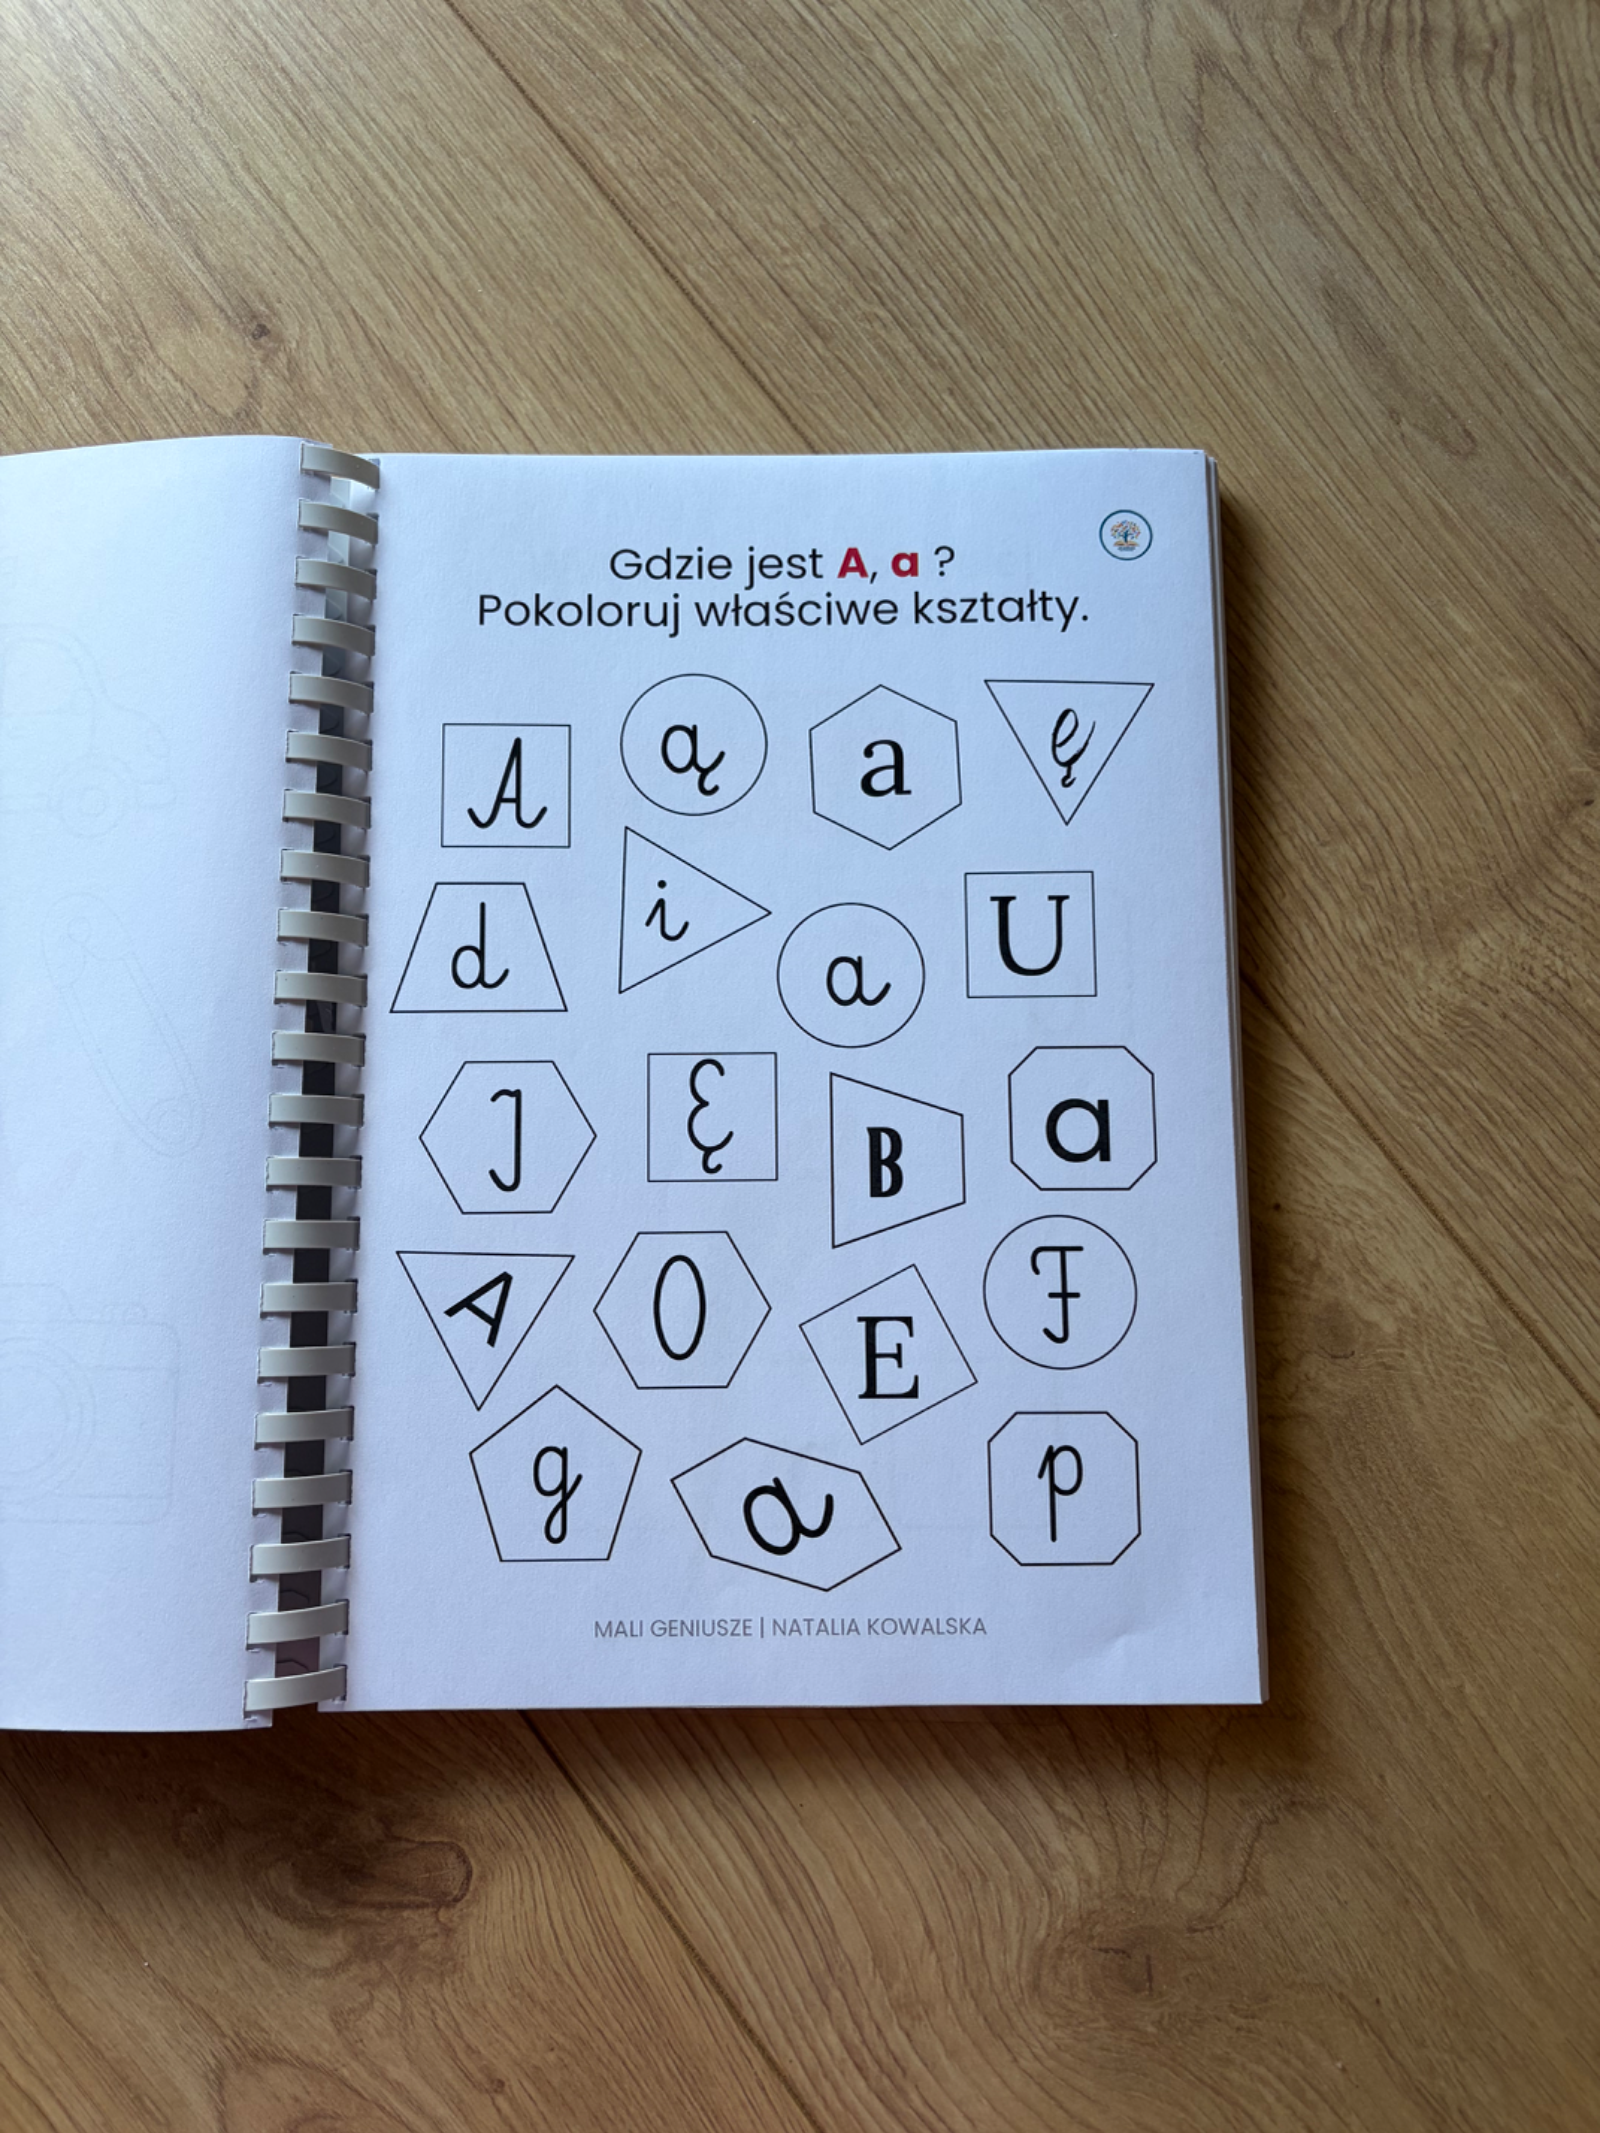 Gdzie jest A, a ?
Pokoloruj właściwe kształty.
A ą a ę
d i a U
J Ę B a
A O E F
g a p
MALI GENIUSZE | NATALIA KOWALSKA